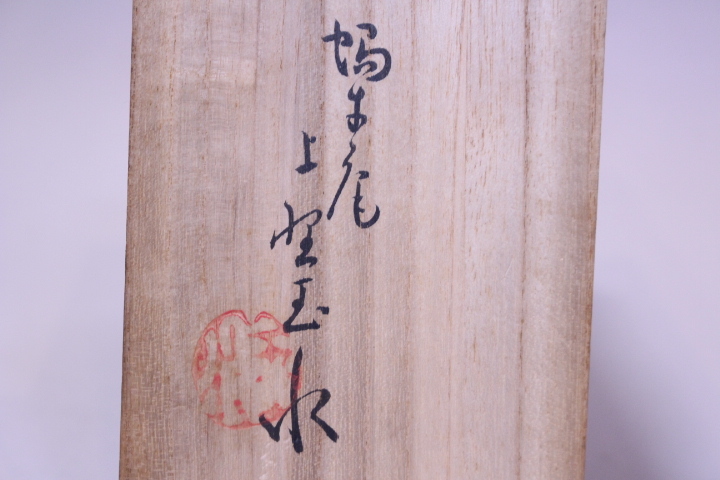 蝸牛庵
上野玉水